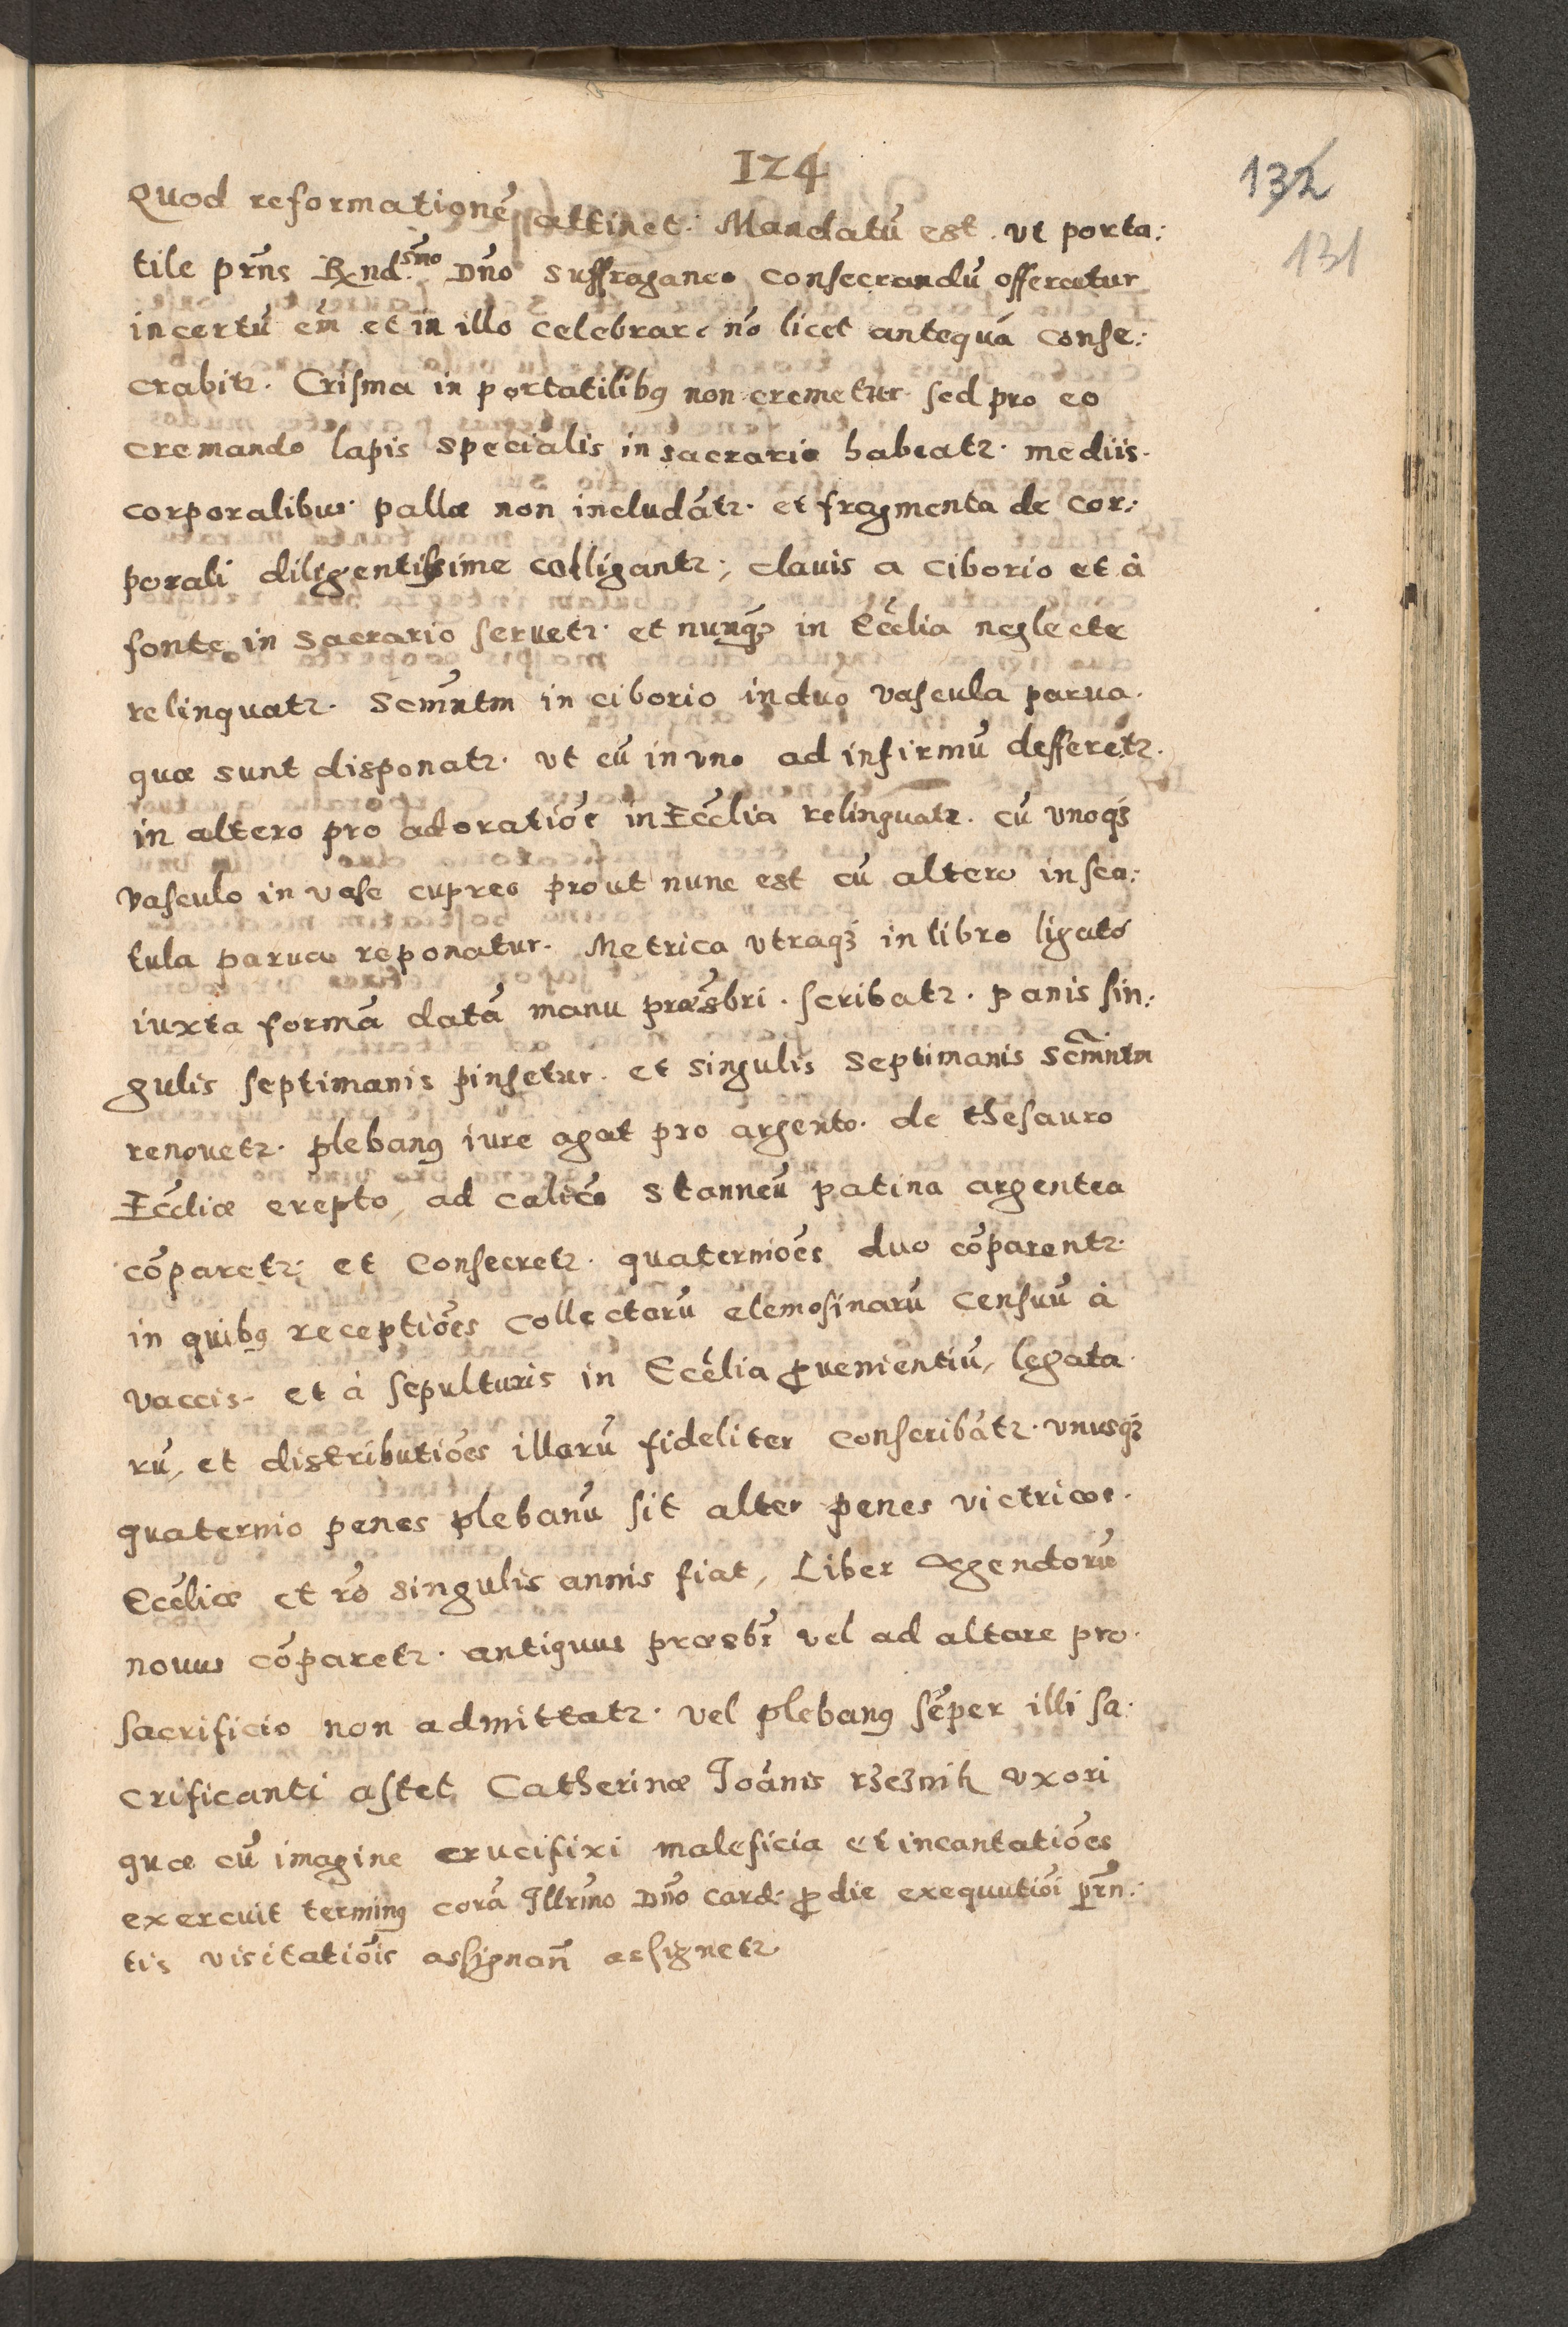 124
132
131
Quod reformationē attinet. Mandatū est ut porta:
tile prn̄s Rx̄nd.smo Dn̄o Suffraganeo Consecrandū offeratur
incertū em̄ et in illo celebrare nō licet antequā conse:
crabitr. Crisma in portatilibꝰ non cremetur sed pro eo
cremando lapis specialis in sacrario habeatr. mediis.
corporalibus pallæ non includātr. et fragmenta de Cor:
porali diligentissime colligantr; clavis a Ciborio et à
fonte in Sacrario servetr. et nunqꝫ in Eccłia neglecte
relinquatr. Scm̄ntm in ciborio in duo vascula parva.
quæ sunt disponatr. ut cū in uno ad infirmū defferetr.
in altero pro adoratiōe in Eccłia relinquatr. cū unoqꝫ
Vasculo in vase cupreo prout nunc est cū altero in sca:
tula parva reponatur. Metrica utraqꝫ in libro ligato
iuxta formā datā manu præsbri. scribatr. panis sin:
gulis septimanis pinsetur. et singulis Septimanis Scm̄ntm
renovetr. plebanꝰ iure agat pro argento. de thesauro
Eccłiæ erepto, ad calicē Stanneū patina argentea
cōparetr; et Consecretr. quaterniōes duo cōparentr.
in quibꝰ receptiōes Collectarū elemosinarū Censuū à
Vaccis. et à sepulturis in Eccłia ꝓvenientiū, legata.
rū, et distributiōes illarū fideliter conscribātr. unusqꝫ
quaternio penes plebanū sit alter penes victricos.
Eccłiæ et rō singulis annis fiat, Liber Agendorū
novus cōparetr. antiquus præsbr vel ad altare pro.
sacrificio non admittatr. vel plebanꝰ sēper illi sa:
crificanti astet, Catherinæ Joānis rzeznik uxori
quæ cū imagine crucifixi maleficia et incantatiōes
exercuit terminꝰ corā Illrmo Dn̄o Card: ꝓ die exequutiōi prn̄:
tis visitatiōis assignan̄ assignetr